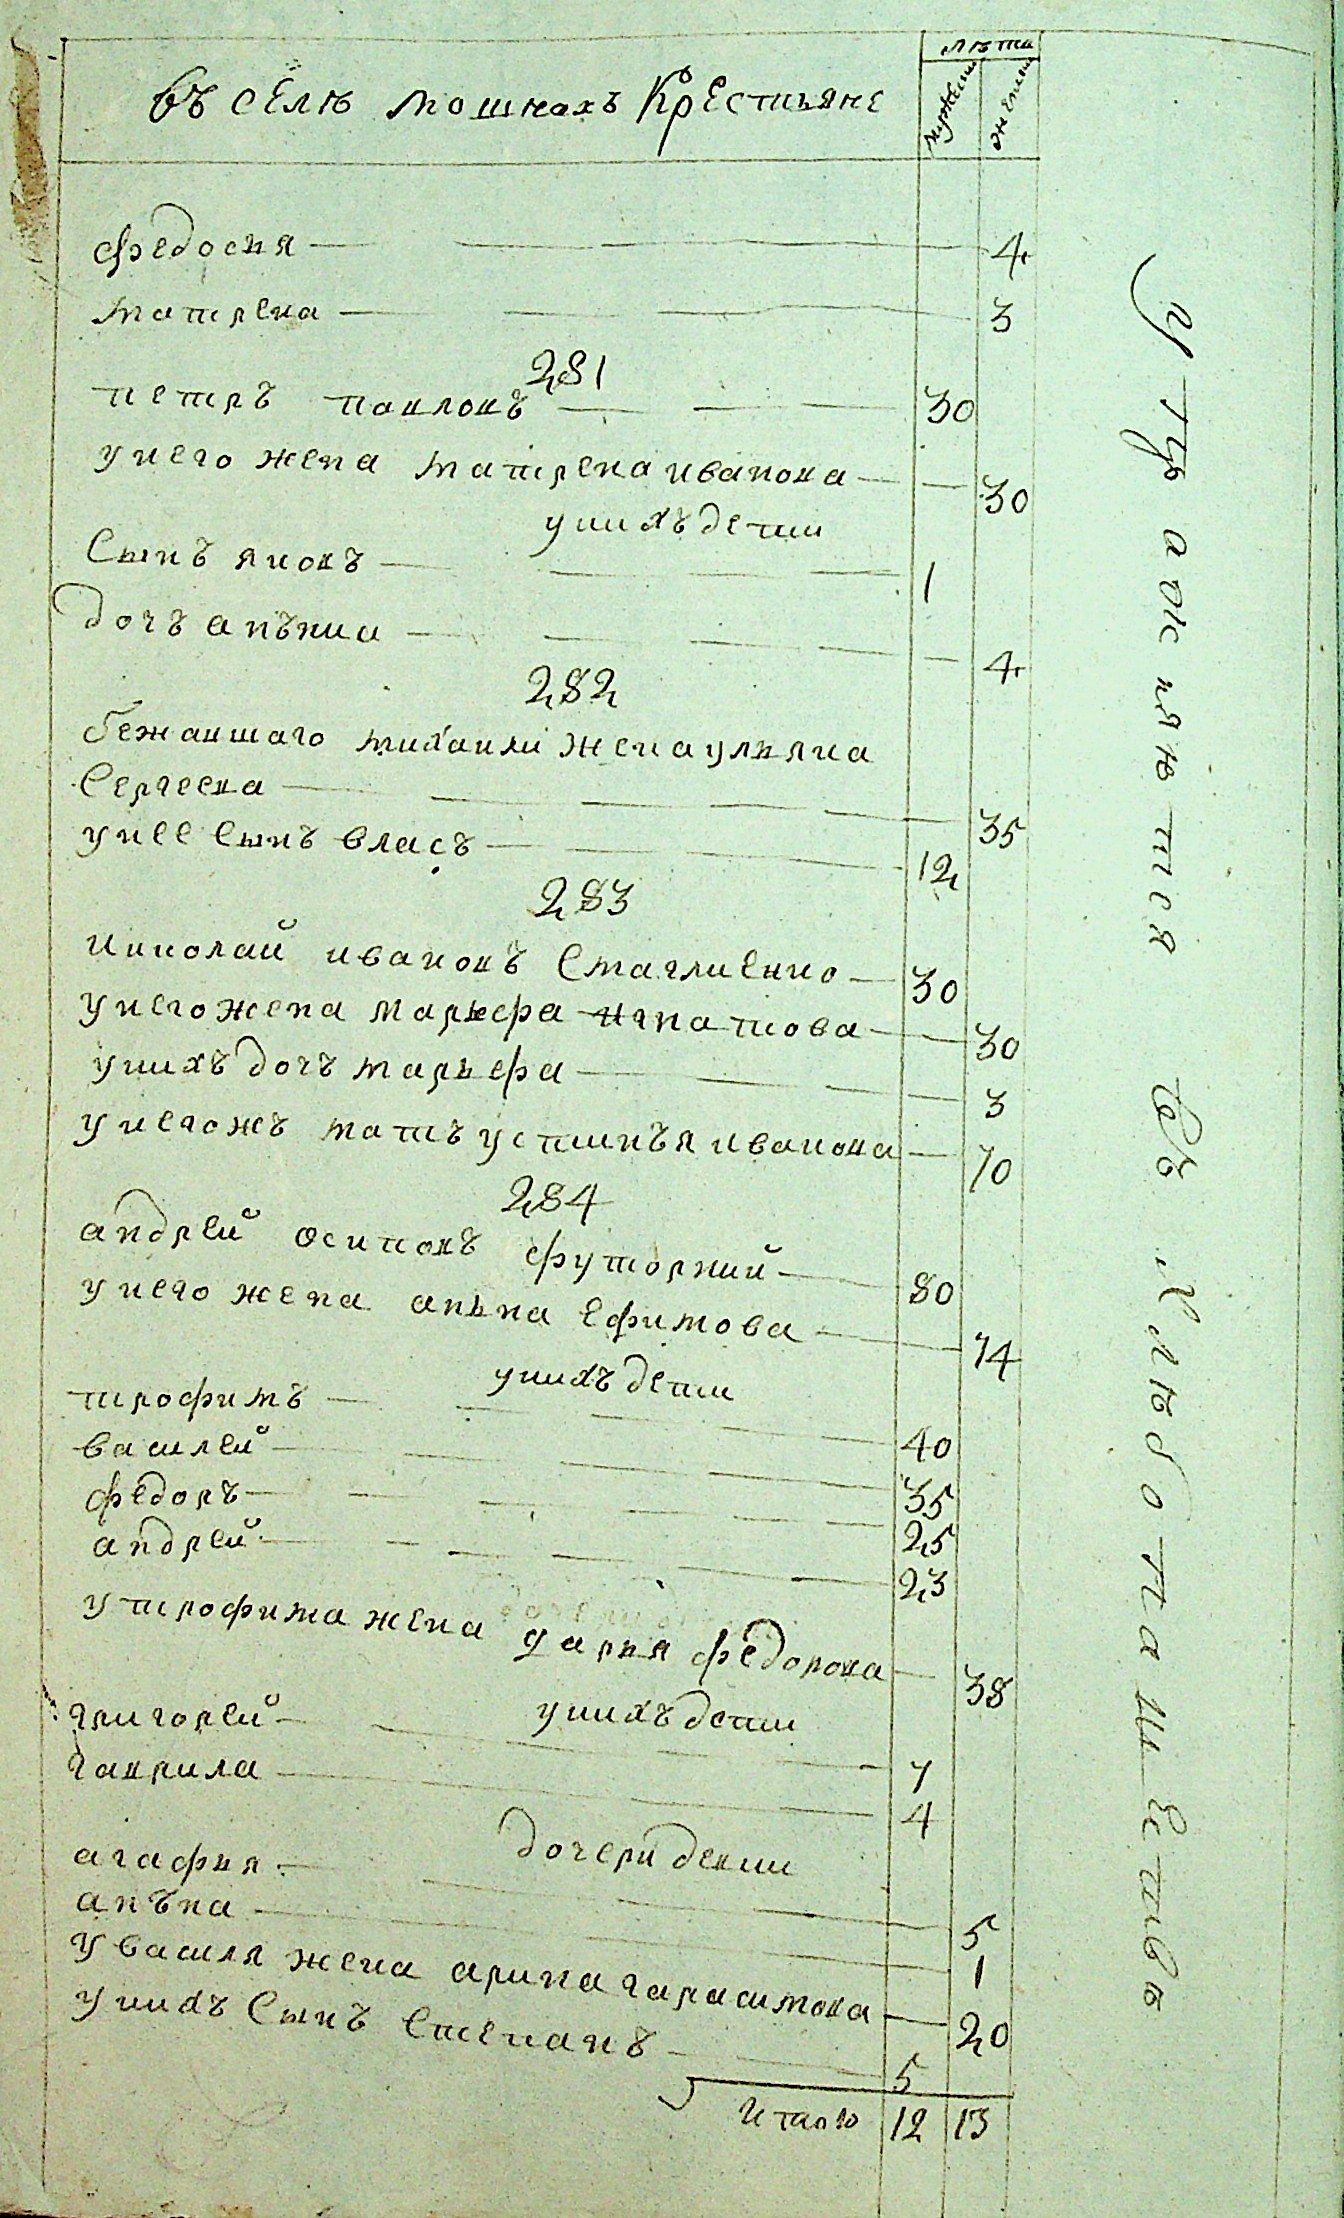 лѣта
въ сѣлѣ мошнахъ крестьяне
мужеск
женск
федосия 4
матрена 3
281
петръ павловъ 30
у него жена матрена иванова 30
у нихъ дети
сынъ яковъ 1
дочъ анъна 4
282
бежавшаго михаила жена ульяна
сергеева 35
у нее сынъ власъ 12
283
николай ивановъ
30
у него жена марьфа игнатова 30
у нихъ дочъ марьфа 3
у негожъ матъ устинъя иванова 70
284
андрей осиповъ футорний 80
у него жена аньна ефимова 74
у нихъ дети
трофимъ 40
василей 35
федоръ 25
андрей 23
у трофима жена дарья федорова 38
у нихъ дети
григорей 7
гаврила 4
дочери девки
агафия 5
анъна 1
у василя жена арина гарасимова 20
у нихъ сынъ степанъ 5
итого 12 13
упражняются въ хлебопашестве